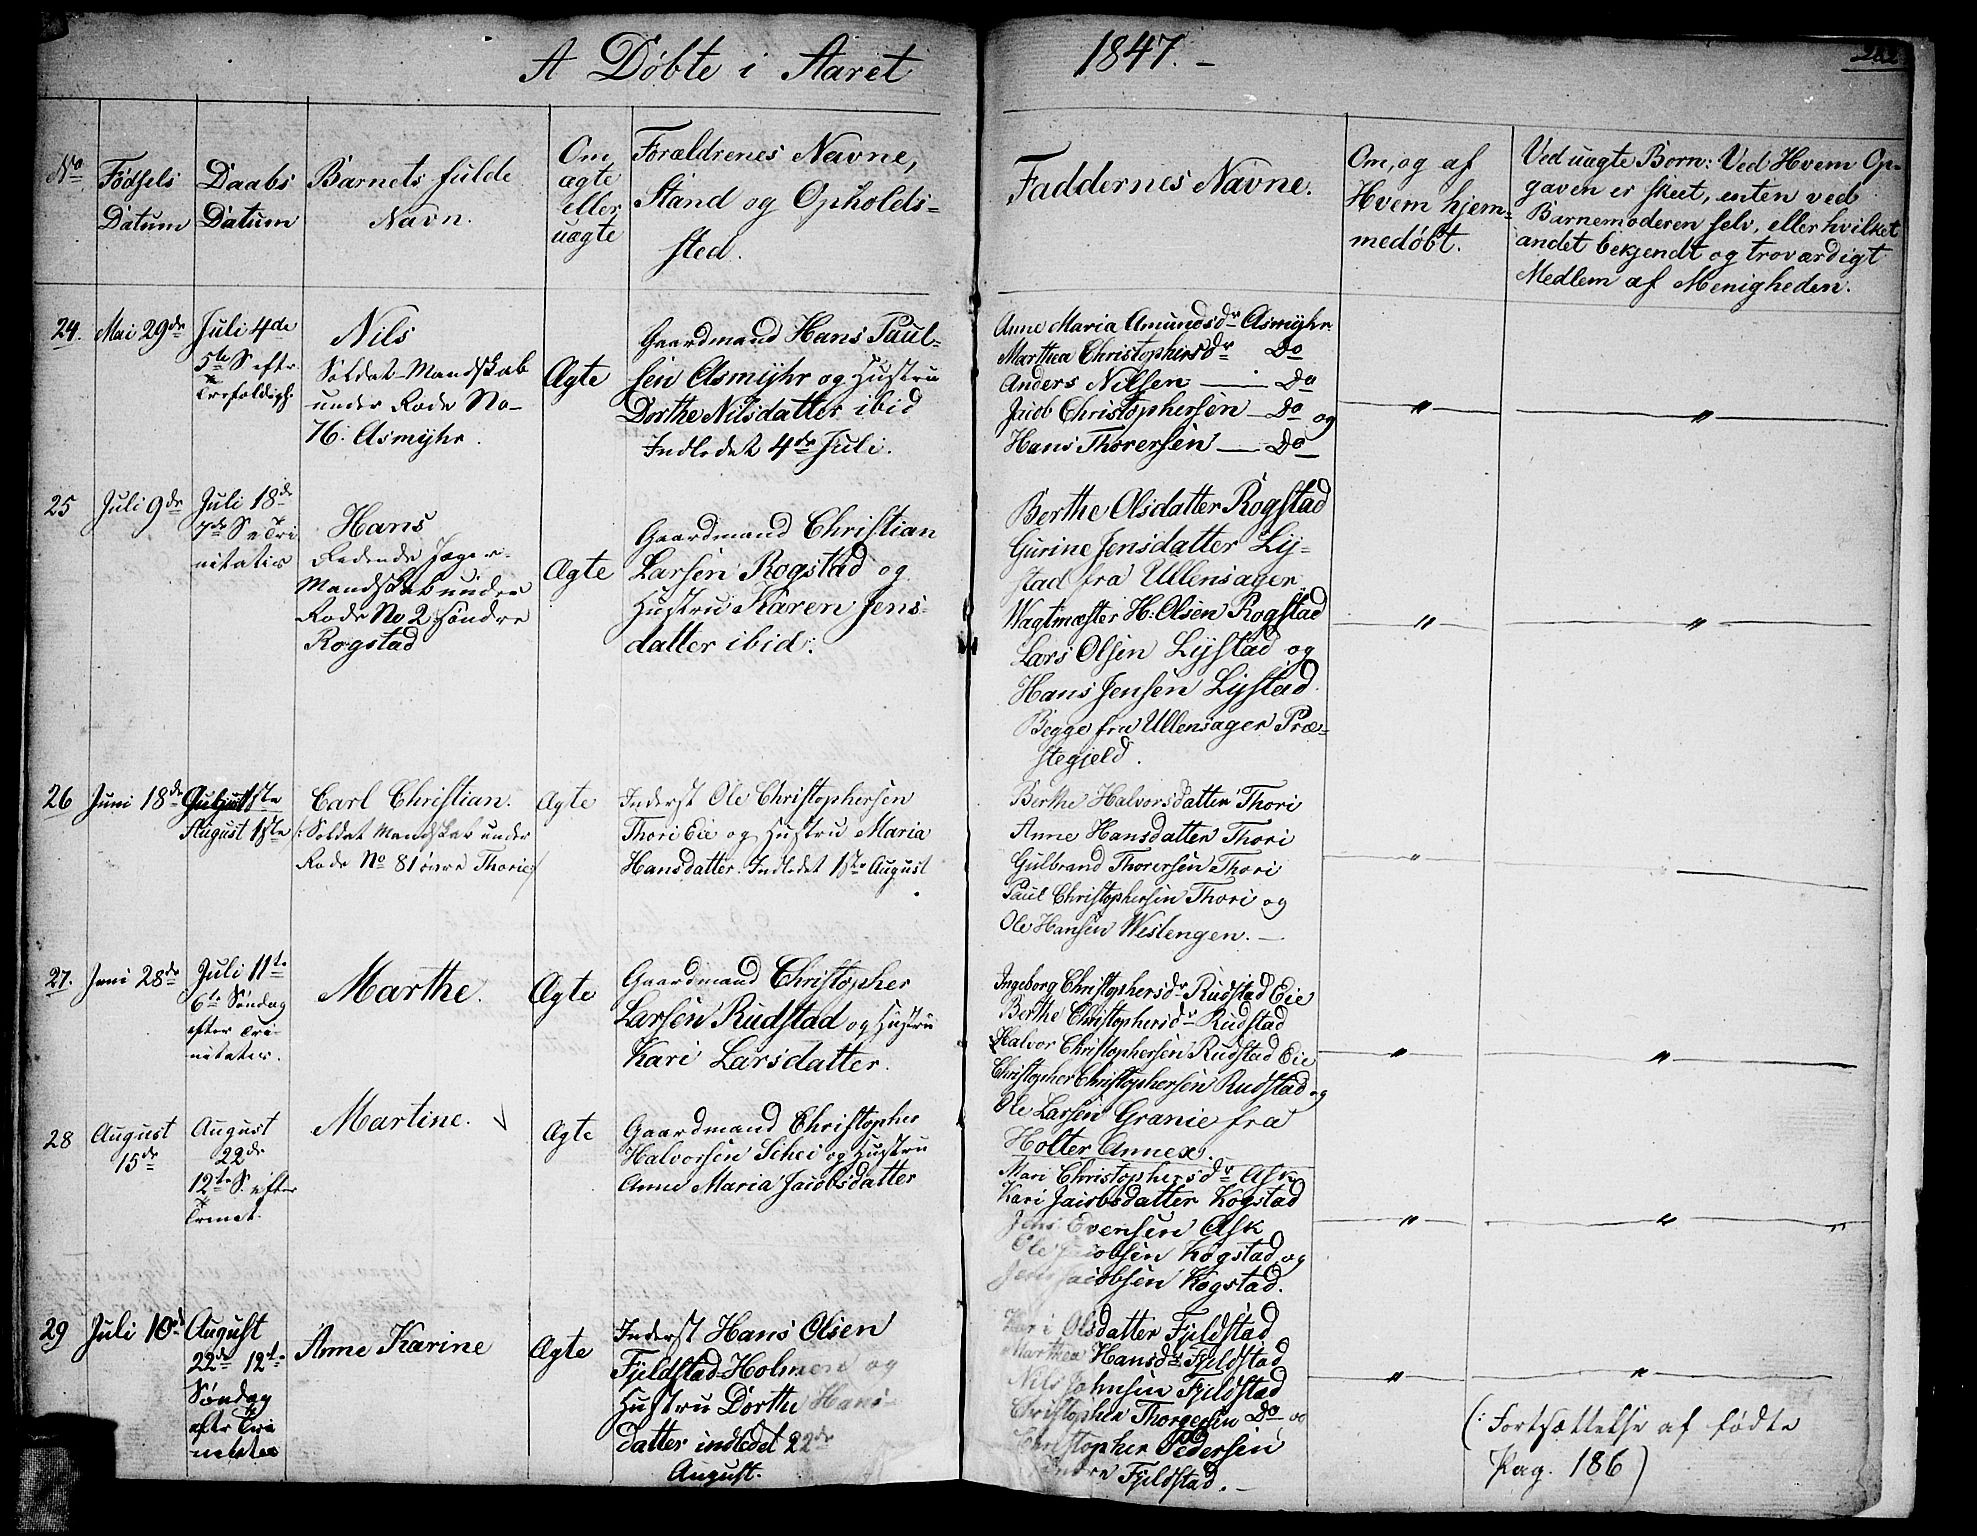 A Døbte i Aaret 1847. –
No
Fødsels
Datum
Daabs
Datum
Barnets fulde
Navn.
Om
ægte
eller
uægte
Forældrenes Navne,
Stand og Opholds-
sted.
Faddernes Navne.
Om, og af
Hvem hjem-
medøbt.
Ved uægte Børn: Ved Hvem Op-
gaven er skeet, enten ved
Barnemoderen selv, eller hvilket
andet bekjendt og troværdigt
Medlem af Menigheden.
24. Mai 29de
Juli 4de
5te S. eftr
Trefoldigh.
Nils
Soldat-Mandskab
under Rode No
76. Asmyhr.
Ægte
Gaardmand Hans Paul-
sen Asmyhr og Hustru
Dorthe Nilsdatter ibid
Indledet 4de Juli.
Anne Maria Amundsdr Asmyhr
Marthea Christophersdr Do
Anders Nilsen — Do
Jacob Christophersen — Do og
Hans Thorersen — Do
"
"
25 Juli 9de
Juli 18de
7de S. e Tri
nitatis
Hans
Ridende Jæger-
Mandskab under
Rode No 2 Søndre
Rogstad
Ægte
Gaardmand Christian
Larsen Rogstad og
Hustru Karen Jens-
datter ibid:
Berthe Olsdatter Rogstad
Gurine Jensdatter Ly-
stad fra Ullensager
Wagtmæster H: Olsen Rogstad
Lars Olsen Lystad og
Hans Jensen Lystad.
Begge fra Ullensager Præ-
stegjeld.
"
"
26 Juni 18de
August 1ste
Carl Christian.
/: Soldat Mandskab under
Rode No 81 øvre Thorie /
Ægte
Inderst Ole Christophersen
Thori Eie og Hustru Maria
Hansdatter. Indledet 1ste August
Berthe Halvorsdatter Thori
Anne Hansdatter Thori
Gulbrand Thorersen Thori
Paul Christophersen Thori og
Ole Hansen Westengen. —
"
27. Juni 28de
Juli 11te
6te Søndag
efter Tri-
nitatis.
Marthe.
Ægte
Gaardmand Christopher
Larsen Rudstad og Hustru
Kari Larsdatter.
Ingeborg Christophersdr Rudstad Eie
Berthe Christophersdr Rudstad
Halvor Christophersen Rudstad Eie
Christopher Christophersen Rudstad og
Ole Larsen Granie fra
Holter Annex.
"
"
28 August
15de
August
22de
12te S. efter
Trinit.
Martine.
Ægte
Gaardmand Christopher
Halvorsen Schei og Hustru
Anne Maria Jacobsdatter
Mari Christophersdr Ask
Kari Jacobsdatter Kogstad
Jens Evensen Ask
Ole Jacobsen Kogstad og
Jens Jacobsen Kogstad.
"
"
29 Juli 10de
August
22de 12te
Søndag
efter Tri
nitatis
Anne Karine
Ægte
Inderst Hans Olsen
Fjeldstad-Holmen og
Hustru Dorthe Hans-
datter indledet 22de
August.
Kari Olsdatter Fjeldstad
Marthea Hansdr Fjeldstad
Nils Johnsen Fjeldstad
Christopher Thorgersen Do og
Christopher Pedersen
Fjeldstad. –
"
"
(: Fortsættelse af fødte
Pag. 186)